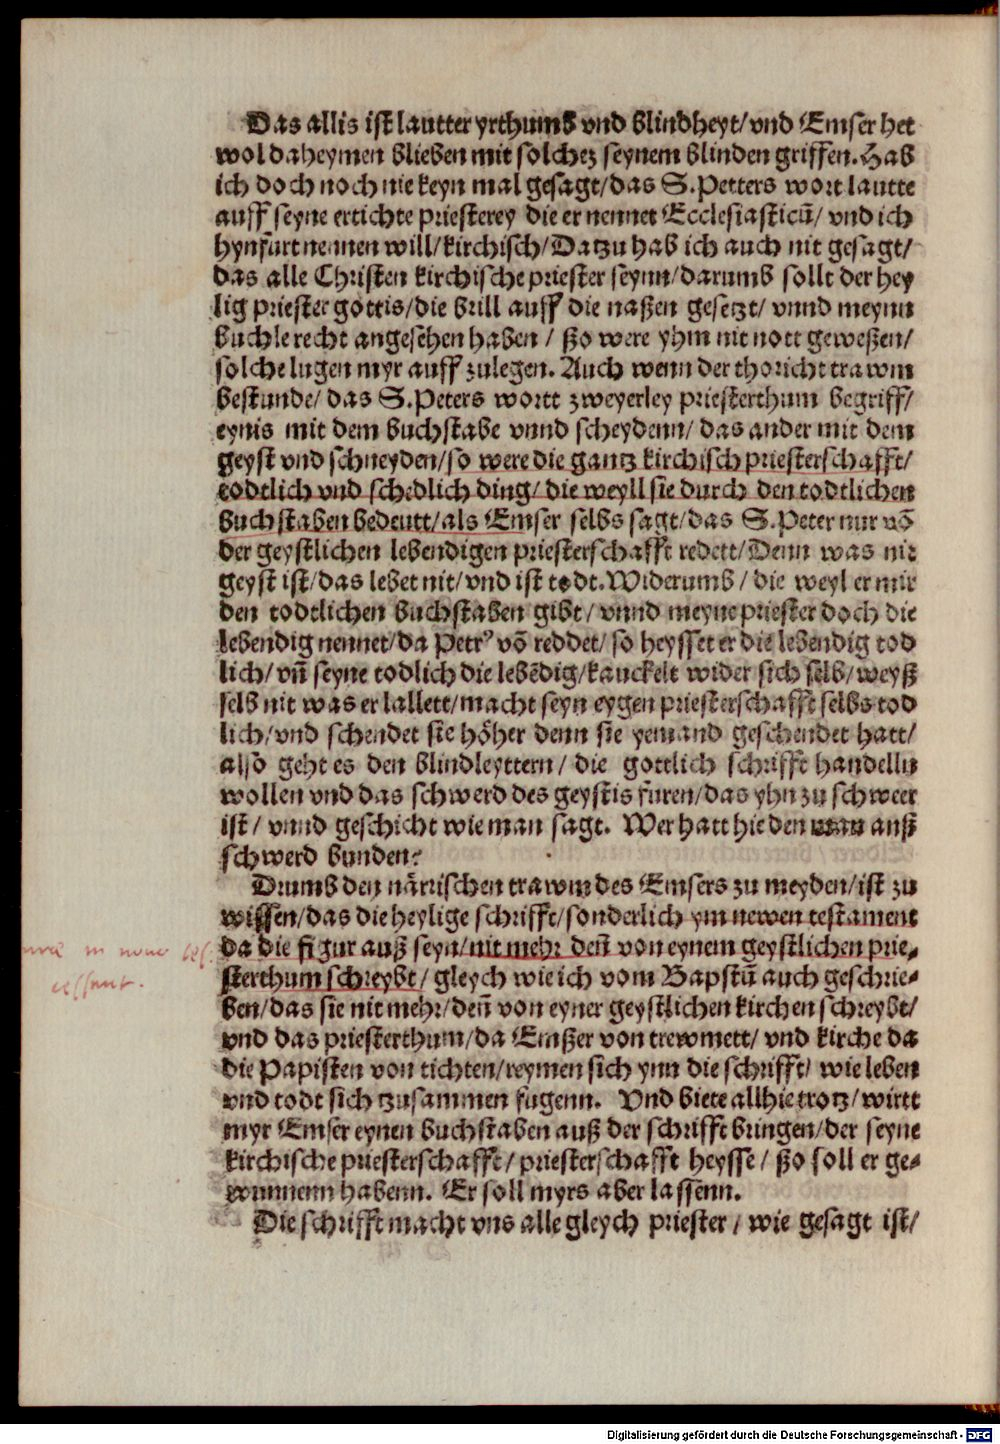 Das allis ist lautter yrthumb vnd blindheyt/ vnd Emser het
wol daheymen blieben mit solchez seynem blinden griffen. Hab
ich doch noch nie keyn mal gesagt/ das S. Petters wort lautte
auff seyne ertichte priesterey die er nennet Ecclesiasticū/ vnd ich
hynfurt nennen will/ kirchisch/ Datzu hab ich auch nit gesagt/
das alle Christen kirchische priester seynn/ darumb sollt der hey
lig priester gottis/ die brill auff die naßen gesetzt/ vnnd meynn
buchle recht angesehen haben / ßo were yhm nit nott geweßen/
solche lugen myr auff zulegen. Auch wenn der thoricht trawm
bestunde/ das S. Peters wortt zweyerley priesterthum begriff/
eynis mit dem buchstabe vnnd scheydenn/ das ander mit dem
geyst vnd schneyden/ so were die gantz kirchisch priesterschafft/
todtlich vnd schedlich ding/ die weyll sie durch den todtlichen
buchstaben bedeutt/ als Emser selbs sagt/ das S. Peter nur vō
der geystlichen lebendigen priesterschafft redett/ Denn was nit
geyst ist/ das lebet nit/ vnd ist todt. Widerumb / die weyl er mir
den todtlichen buchstaben gibt/ vnnd meyne priester doch die
lebendig nennet/ da Petrꝰ vō reddet/ so heysset er die lebendig tod
lich/ vñ seyne todlich die lebēdig/ kauckelt wider sich selb/ weyß
selb nit was er lallett/ macht seyn eygen priesterschafft selbs tod
lich/ vnd schendet sie höher denn sie yemand geschendet hatt/
also geht es den blindleyttern/ die gottlich schrifft handelln
wollen vnd das schwerd des geystis furen/ das yhn zu schweer
ist/ vnnd geschicht wie man sagt. Wer hatt hie den man anß
schwerd bunden?
Drumb den närrischen trawm des Emsers zu meyden/ ist zu
wissen/ das die heylige schrifft/ sonderlich ym newen testament
da die figur auß seyn/ nit mehr deñ von eynem geystlichen prie-
sterthum schreybt/ gleych wie ich vom Bapstū auch geschrie-
ben/ das sie nit mehr/ deñ von eyner geystlichen kirchen schreybt/
vnd das priesterthum/ da Emßer von trewmett/ vnd kirche da
die Papisten von tichten/ reymen sich ynn die schrifft/ wie leben
vnd todt sich tzusammen fugenn. Vnd biete allhie trotz/ wirtt
myr Emser eynen buchstaben auß der schrifft bringen/ der seyne
kirchische priesterschafft/ priesterschafft heysse / ßo soll er ge-
wunnenn habenn. Er soll myrs aber lassenn.
Die schrifft macht vns alle gleych priester / wie gesagt ist/
in nouo tes.
cessant.
Digitalisierung gefördert durch die Deutsche Forschungsgemeinschaft - DFG